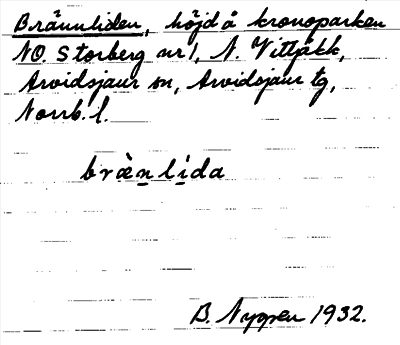 Brännliden, höjd å kronoparken
NO. Storberg nr 1, N. Vitljåkk,
Arvidsjaur sn, Arvidsjaur tg,
Norrb. l.
bræ̀n̲lịda
B. Nyppen 1932.